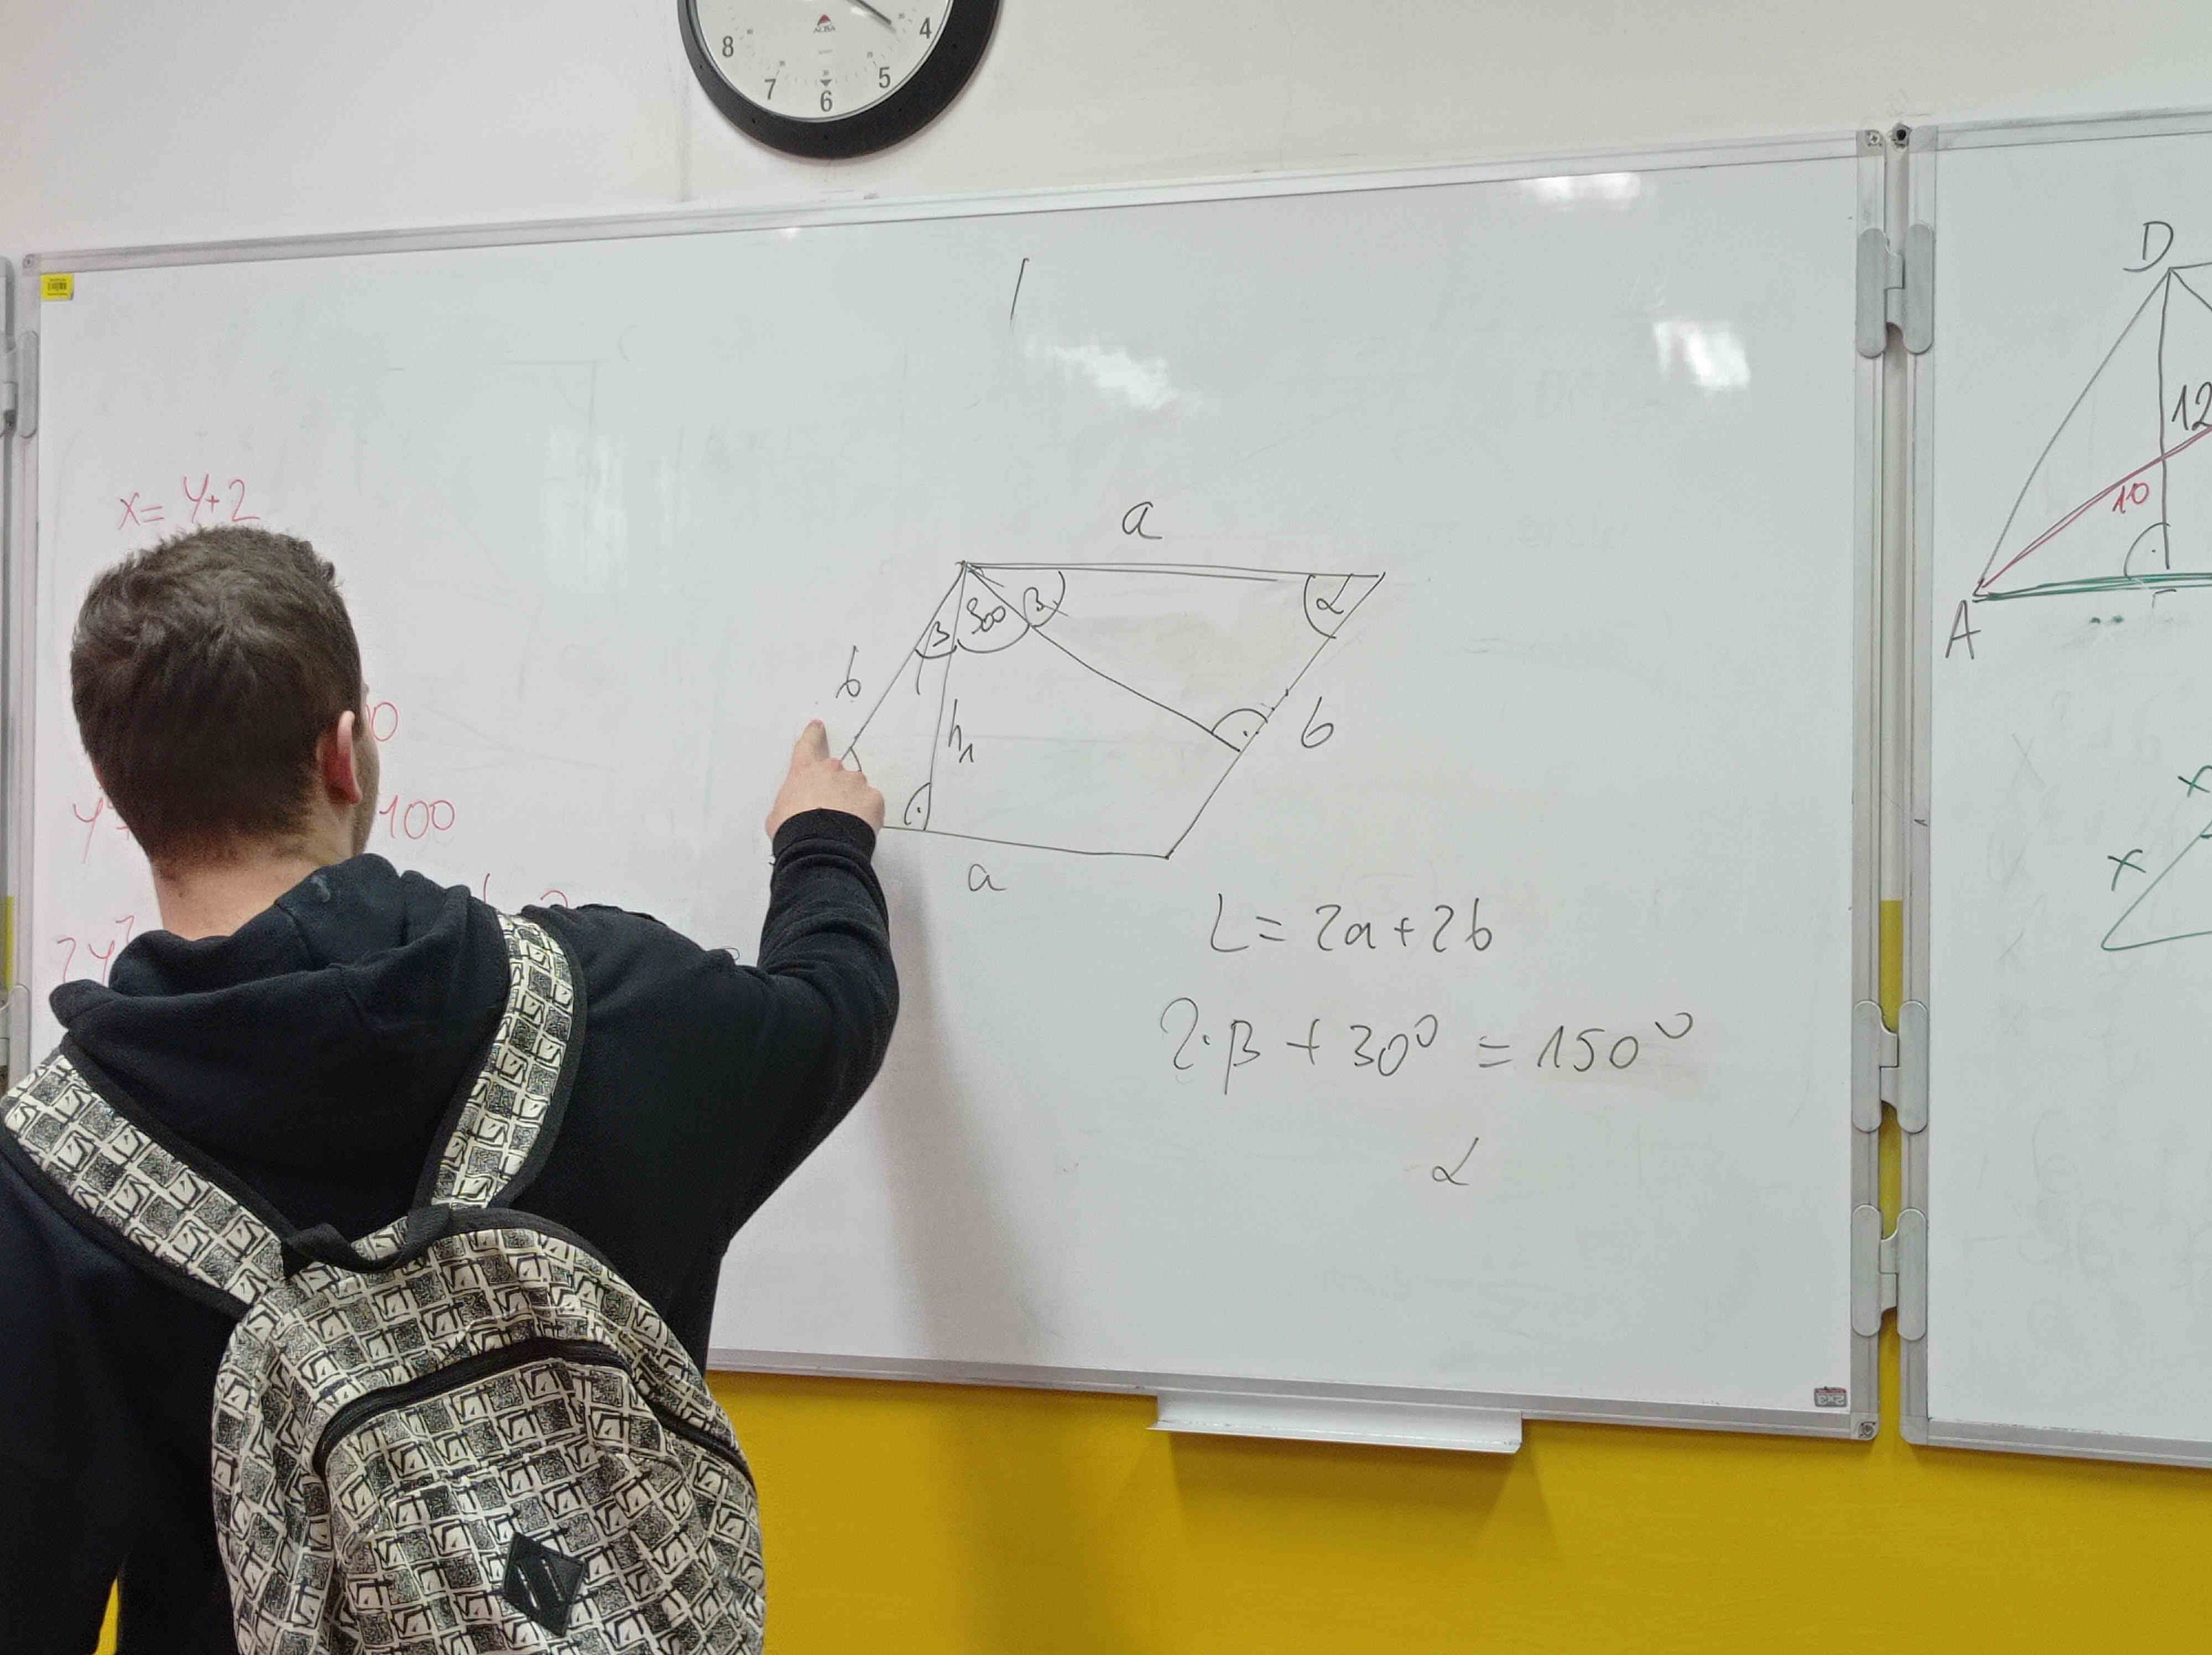 8 7 6 5 4
ALBA
x = y + 2
0
100
a
β 30° β α
b
h₁
b
a
L = 2a + 2b
2·β + 30° = 150°
α
D
12
10
A
x
x